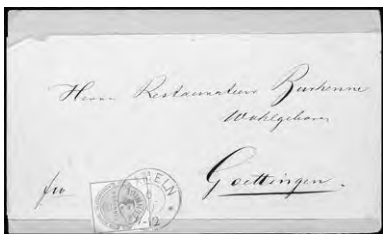 Herrn Restaurateur Burhenne
Wohlgeboren
Goettingen.
fro